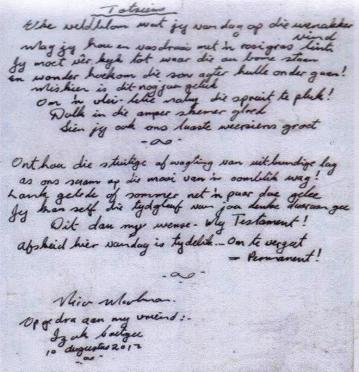 Totsiens
Elke veldblom wat jy vandag op die wenakker vind
Mag jy hou en vasdraai met 'n rosigras lint
Jy moet vêr kyk tot waar die au bome staan
En wonder hoekom die son agter hulle onder gaan!
Miskien is dit nog jou geluk
Om 'n vlei-lelie naby die spruit te pluk!
Dalk in die amper skemer gloed
Sien jy ook ons laaste weersiens groet
Onthou die stuitige afwagting van uitbundige lag
as ons saam op die mooi van 'n oomblik wag!
Lank gelede of sommer net 'n paar dae gelee
Jy kan self die tydgleuf van jou denke daaraan gee
Dit dan my wense - My Testament!
Afskeid hier vandag is tydelik... Om te vergeet
= Permanent!
Opgedra aan my vriend:-
Izak Coetzee
10 Augustus 2012